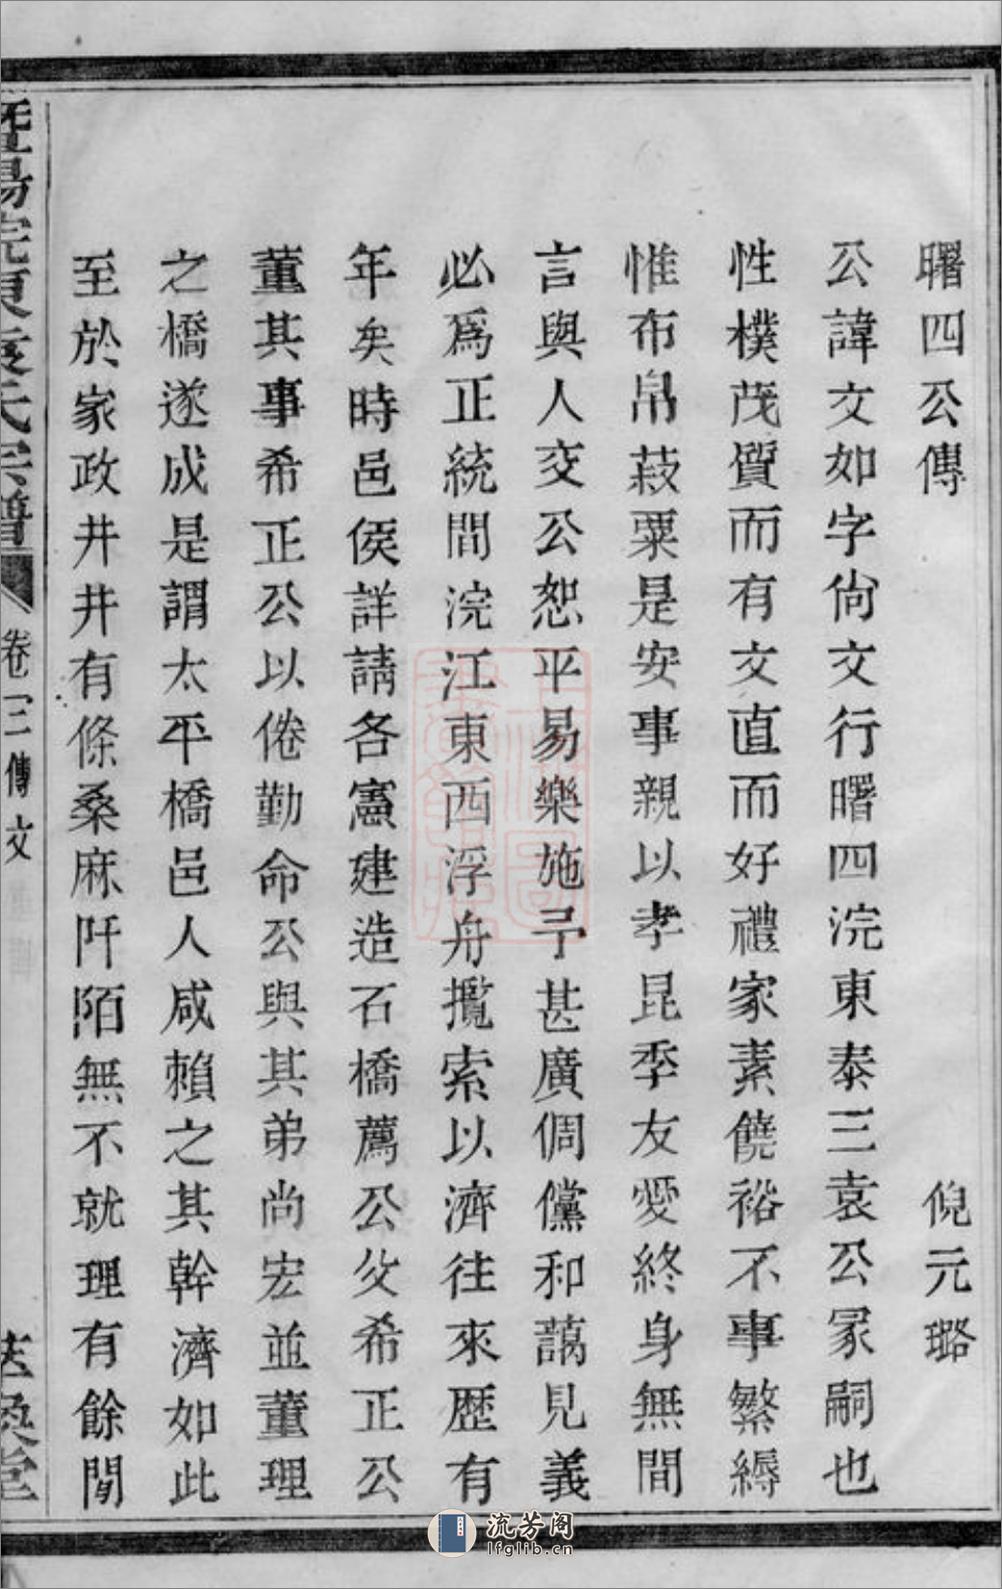 曙四公傳 倪元璐
公諱文如字尙文行曙四浣東泰三袁公冢嗣也
性樸茂質而有文直而好禮家素饒裕不事繁縟
惟布帛菽粟是安事親以孝昆季友愛終身無間
言與人交公恕平易樂施予甚廣倜儻和藹見義
必爲正統間浣江東西浮舟攬索以濟往來歷有
年矣時邑侯詳請各憲建造石橋薦公父希正公
董其事希正公以倦勤命公與其弟尚宏並董理
之橋遂成是謂太平橋邑人咸賴之其幹濟如此
至於家政井井有條桑麻阡陌無不就理有餘閒
暨陽浣東袁氏宗譜 卷一 傳文
流芳阁
lfglib.cn